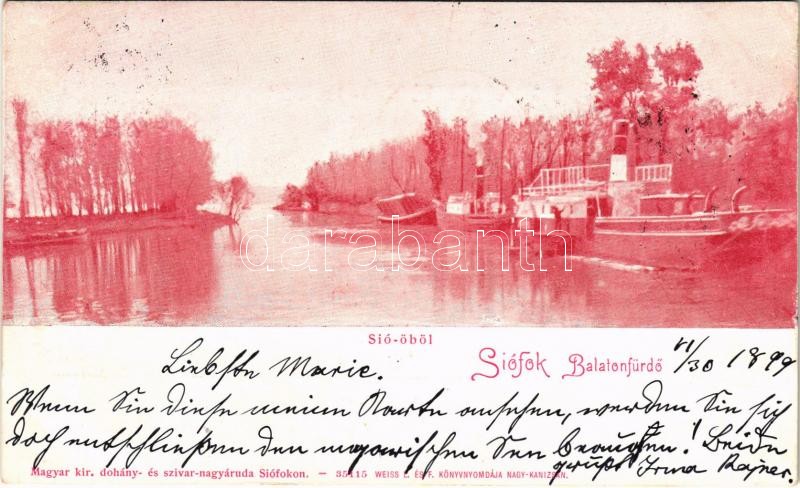 darabanth
Sió-öböl
Siófok Balatonfürdő
1899
Liebste Marie.
Wenn Sie diese meine Karte ansehen, werden Sie sich
doch entschließen den magyarischen See besuchen!
grüßt Irma Rajner.
Magyar kir. dohány- és szivar-nagyáruda Siófokon. – 35115 WEISS L. ÉS F. KÖNYVNYOMDÁJA NAGY-KANIZSÁN.